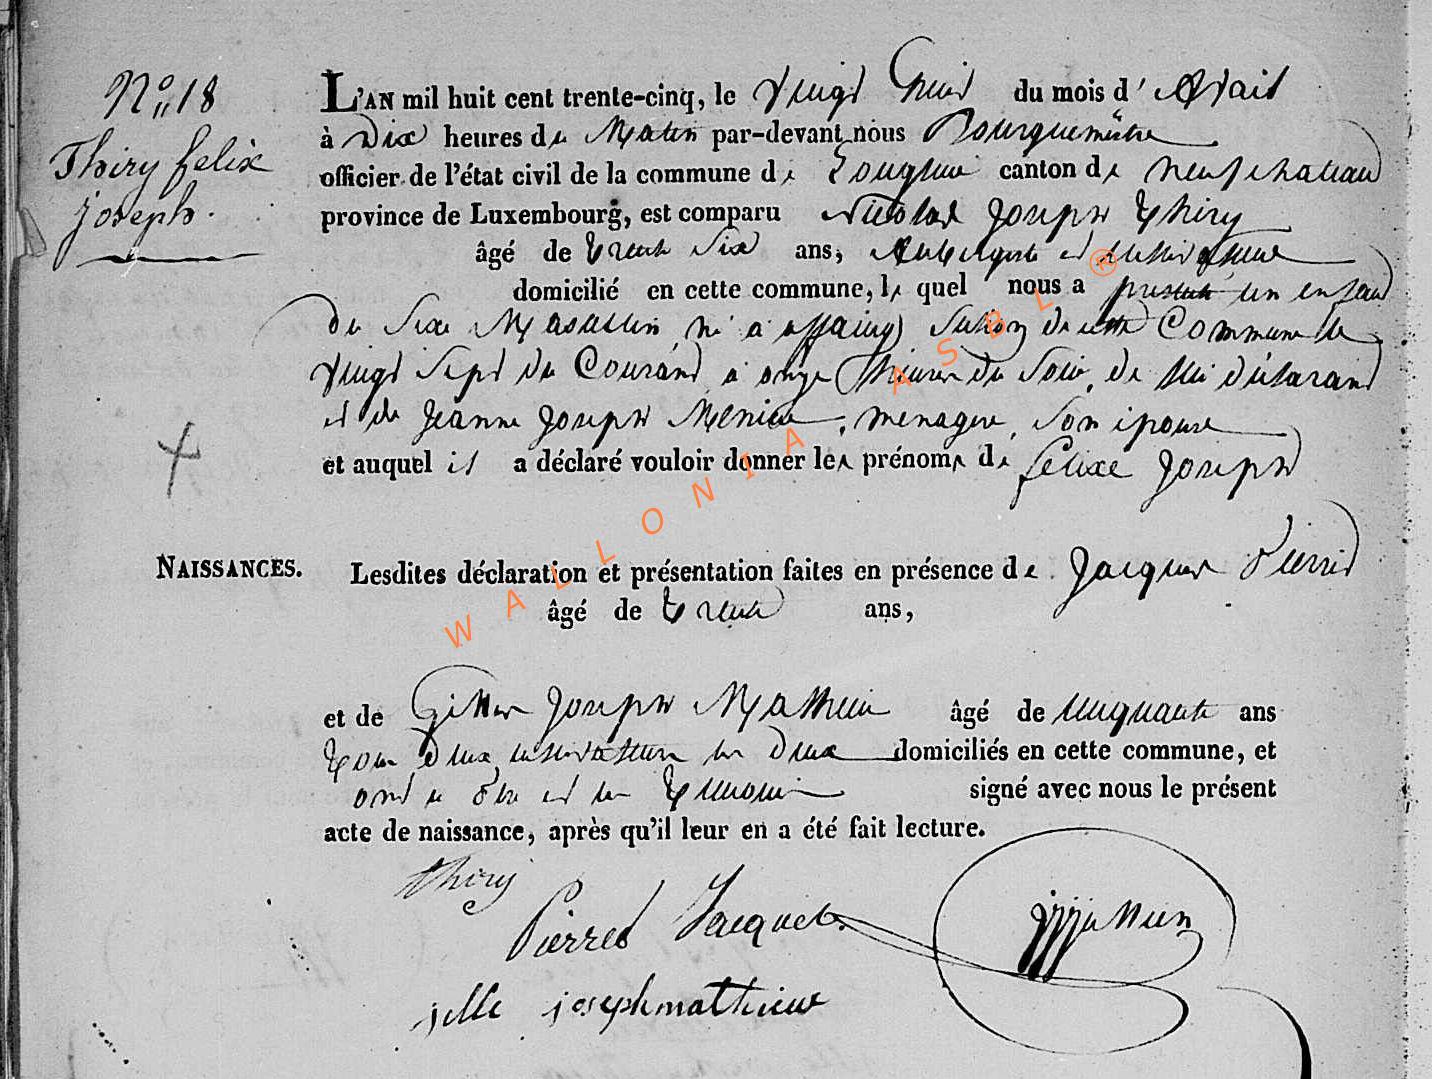 N° 18
Thiry felix
joseph.
L'AN mil huit cent trente-cinq, le vingt du mois d' Avril
à Dix heures de Matin par-devant nous Bourguemêtre
officier de l'état civil de la commune de Longlier canton de neufchateau
province de Luxembourg, est comparu Nicolas Joseph Thiry
âgé de trente Six ans, Aubergiste et
domicilié en cette commune, le quel nous a presenté un enfant
du Sexe Masculin, né a Section de cette Commune le
vingt Sept du Courant a onze heures du Soir, de lui déclarant
et de Jeanne Joseph, menagere, Son epouse
et auquel il a déclaré vouloir donner les prénoms de felixe Joseph
NAISSANCES.
Lesdites déclaration et présentation faites en présence de Jacques Pierret
âgé de trente ans,
et de Gilles Joseph Mathieu âgé de cinquante ans
tous deux domiciliés en cette commune, et
ont signé avec nous le présent
acte de naissance, après qu'il leur en a été fait lecture.
thiry
Pierret Jacques
jille joseph mathieu
WALLONIA ASBL ®